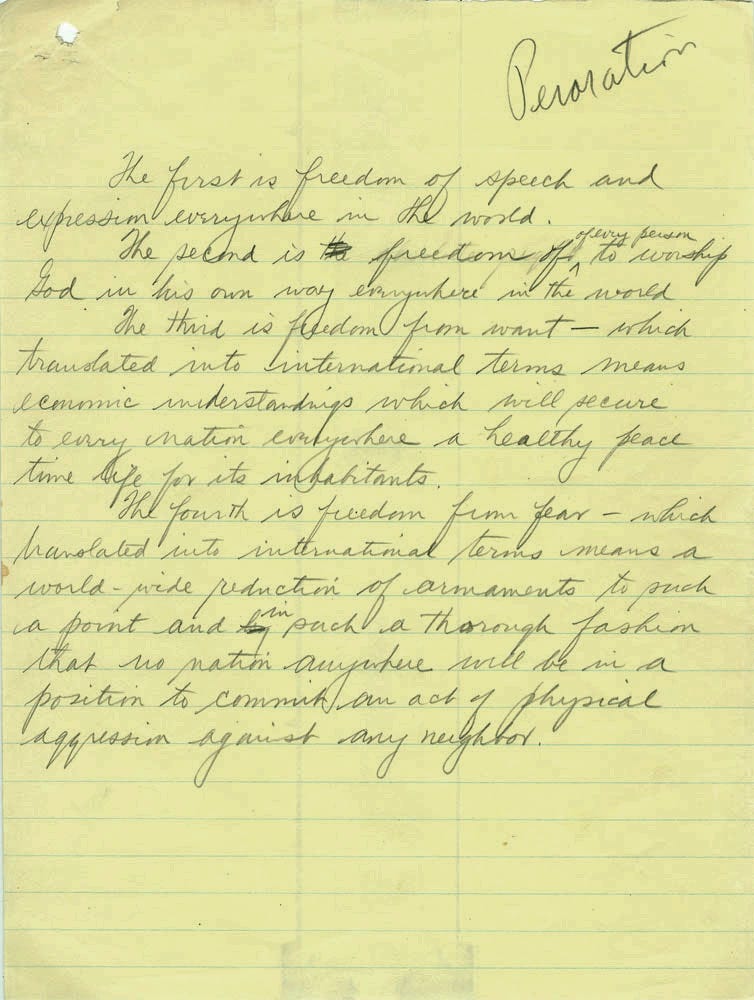 Peroration
The first is freedom of speech and
expression everywhere in the world.
The second is the freedom of of every person to worship
God in his own way everywhere in the world
The third is freedom from want – which
translated into international terms means
economic understandings which will secure
to every nation everywhere a healthy peace
time life for its inhabitants.
The fourth is freedom from fear – which
translated into international terms means a
world-wide reduction of armaments to such
a point and by in such a thorough fashion
that no nation anywhere will be in a
position to commit an act of physical
aggression against any neighbor.